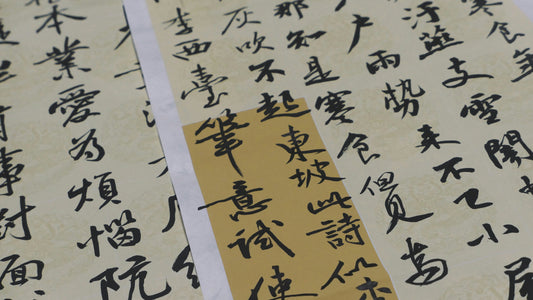 寒食年
汙燕支雪闇
户雨勢來不已小屋
那知是寒食但見烏
灰吹不起東坡此詩似
李西臺筆意試使
本業愛為煩惱阮
事對面